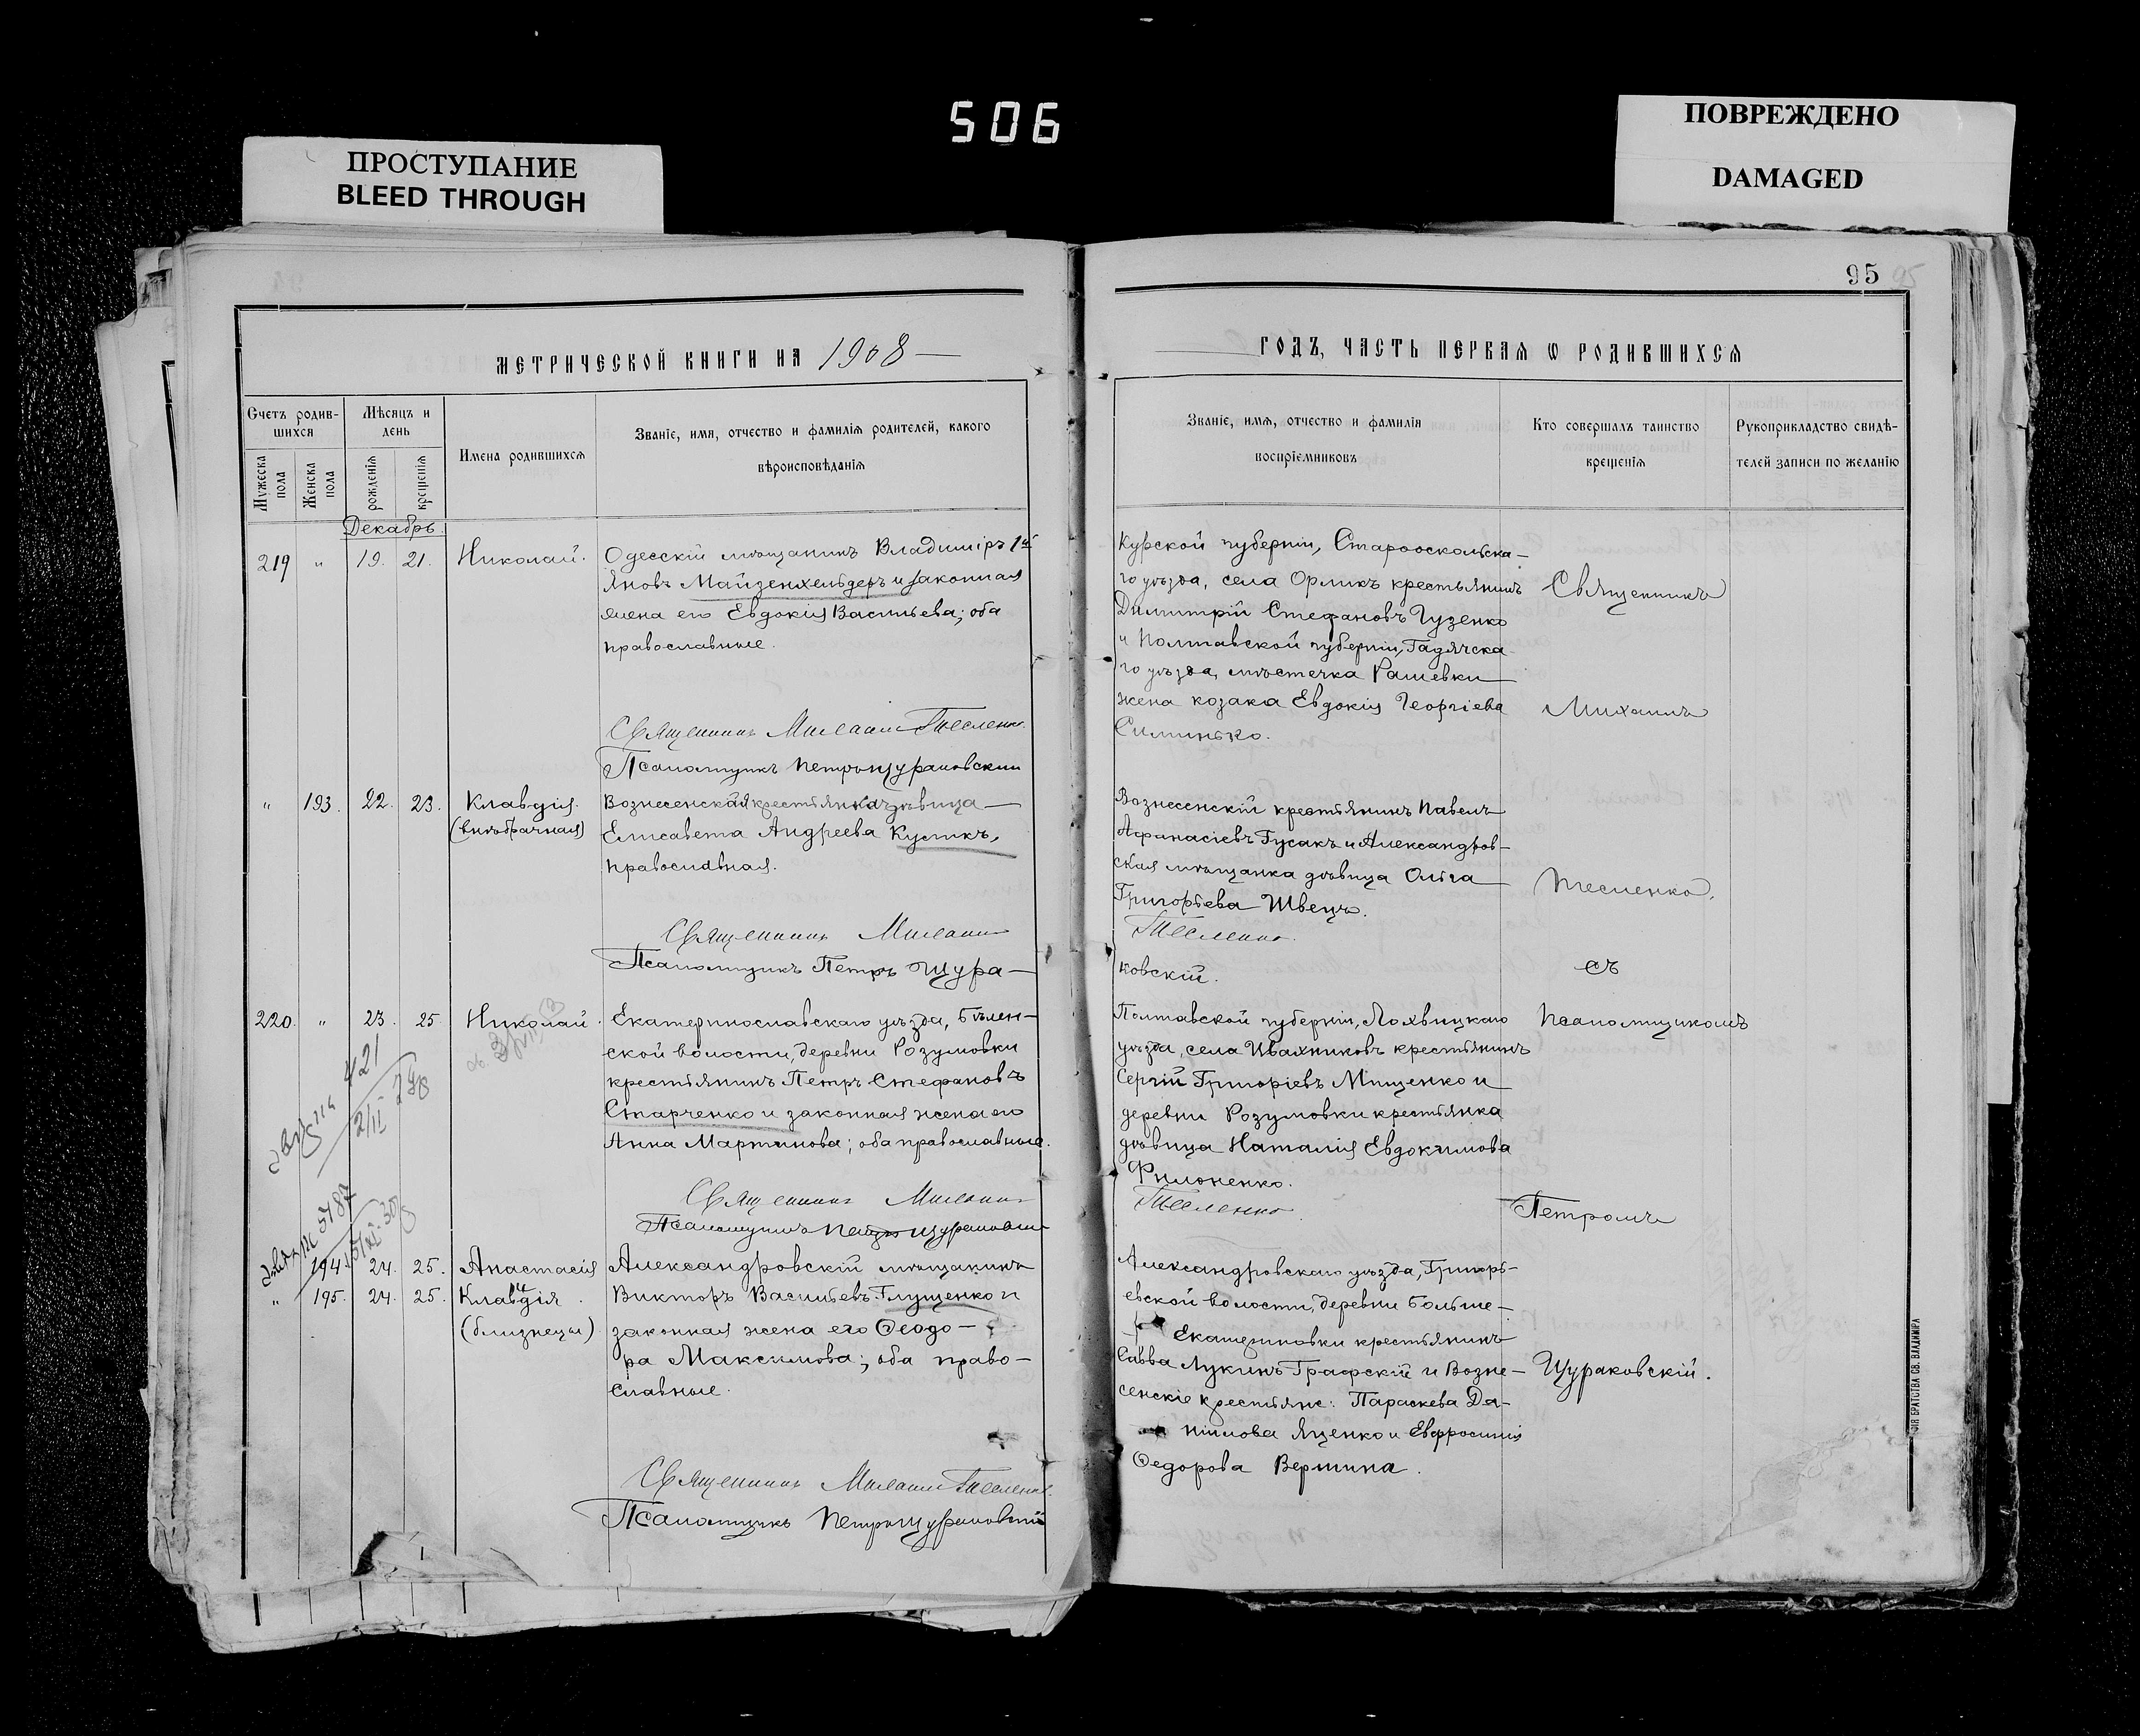 506
ПРОСТУПАНИЕ
BLEED THROUGH
ПОВРЕЖДЕНО
DAMAGED
95
МЕТРИЧЕСКОЙ КНИГИ НА 1908
Счетъ родив-
шихся
Мѣсяцъ и
день
Имена родившихся
Званіе, имя, отчество и фамилія родителей, какого
вѣроисповѣданія
Мужеска пола
Женска пола
рожденія
крещенія
Декабрь
219 " 19. 21. Николай. Одесскій мѣщанинъ Владиміръ
Яновъ Майзенхельдеръ и законная
жена его Евдокія Васильева; оба
православные.
Священникъ Михаилъ Тесленко
Псаломщикъ Петръ Щураковскій
" 193. 22. 23. Клавдія. Вознесенская крестьянка дѣвица
(внѣбрачная) Елисавета Андреева Кусткъ,
православная.
Священникъ Михаилъ
Псаломщикъ Петръ Щура-
220. " 23. 25. Николай. Екатеринославскаго уѣзда, Бѣлен-
ской волости, деревни Розумовки
крестьянинъ Петръ Стефановъ
Старченко и законная жена его
Анна Мартинова; оба православные.
421
2/II
Священникъ Михаилъ
Псаломщикъ Петръ Щураковскій
5787
194. 24. 25. Анастасія Александровскій мѣщанинъ
" 195. 24. 25. Клавдія. Викторъ Васильевъ Глущенко и
(близнецы) законная жена его Ѳеодо-
ра Максимова; оба право-
славные.
Священникъ Михаилъ Тесленко.
Псаломщикъ Петръ Щураковскій
ГОДЪ, ЧАСТЬ ПЕРВАЯ Ѡ РОДИВШИХСЯ
Званіе, имя, отчество и фамилія
воспріемниковъ
Кто совершалъ таинство
крещенія
Рукоприкладство свидѣ-
телей записи по желанію
Курской губерніи, Старооскольска-
го уѣзда, села Орликъ крестьянинъ
Димитрій Стефановъ Гузенко
и Полтавской губерніи, Гадячска-
го уѣзда, мѣстечка Рашевки
жена козака Евдокія Георгіева
Силинько.
Вознесенскій крестьянинъ Павелъ
Афанасіевъ Гусакъ и Александров-
ская мѣщанка дѣвица Ольга
Григорьева Швецъ.
Тесленко.
ковскій.
Полтавской губерніи, Лохвицкаго
уѣзда, села Ивахниковъ крестьянинъ
Сергій Григоріевъ Мищенко и
деревни Розумовки крестьянка
дѣвица Наталія Евдокимова
Филоненко.
Тесленко
Александровскаго уѣзда, Григорь-
евской волости, деревни Больше-
Екатериновки крестьянинъ
Савва Лукинъ Графскій и Возне-
сенскіе крестьяне: Параскева Да-
ніилова Яценко и Евфросинія
Ѳедорова Вершина.
Священникъ
Михаилъ
Тесленко,
съ
Псаломщикомъ
Петромъ
Щураковскій.
БРАТСТВА СВ. ВЛАДИМІРА